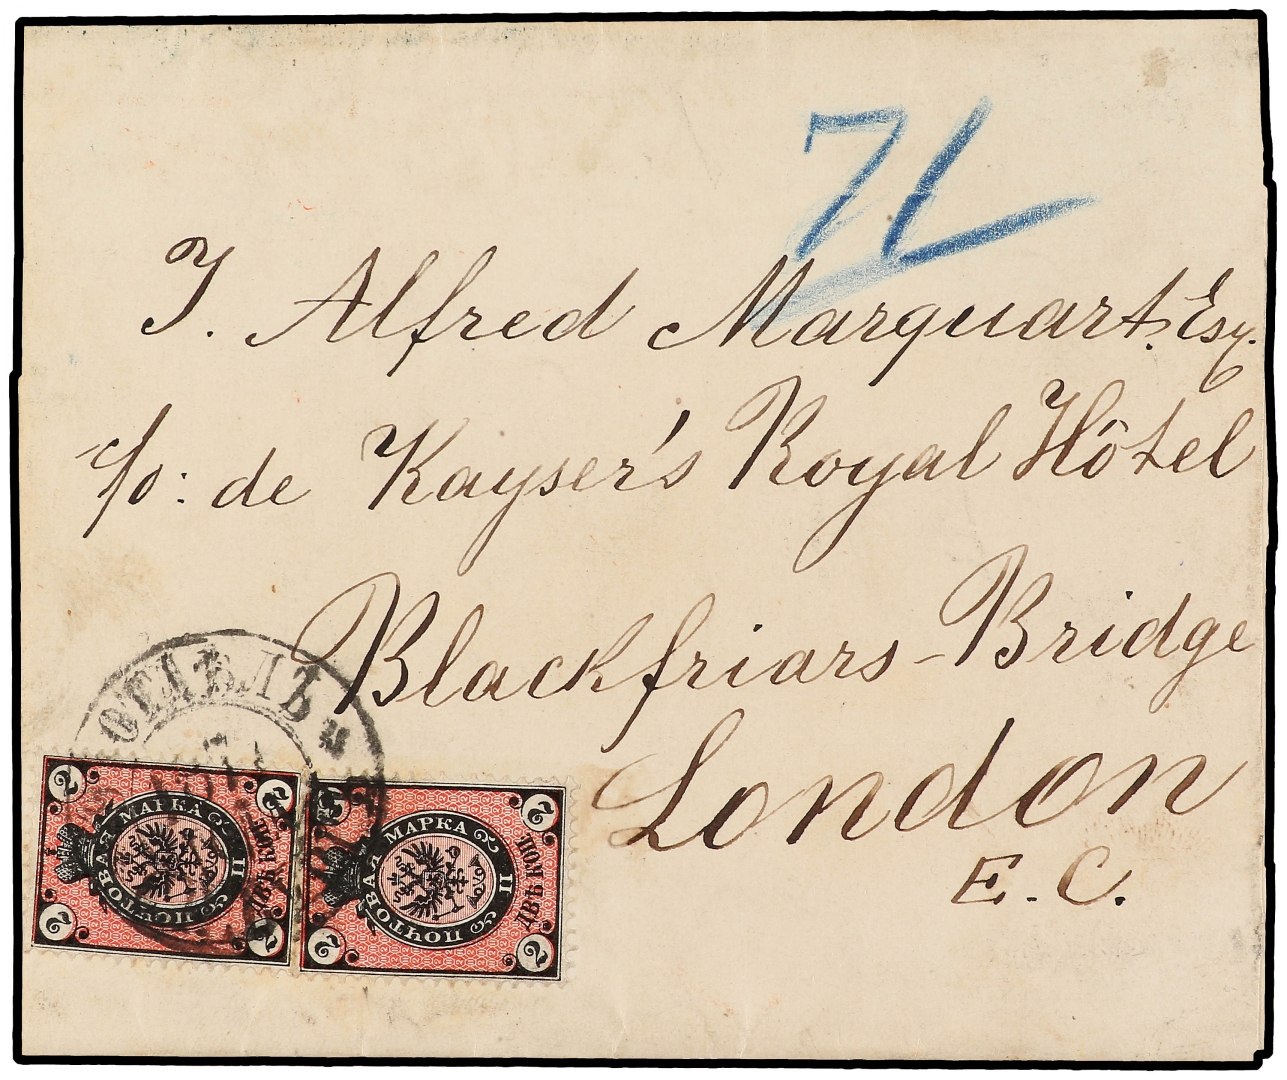 72
J. Alfred Marquart. Esq.
c/o: de Kayser's Royal Hôtel
Blackfriars-Bridge
London
E. C.
ОТДѢЛЪ
2 2
ПОЧТОВАЯ МАРКА
ДВѢ КОП.
2 2
2 2
ПОЧТОВАЯ МАРКА
ДВѢ КОП.
2 2